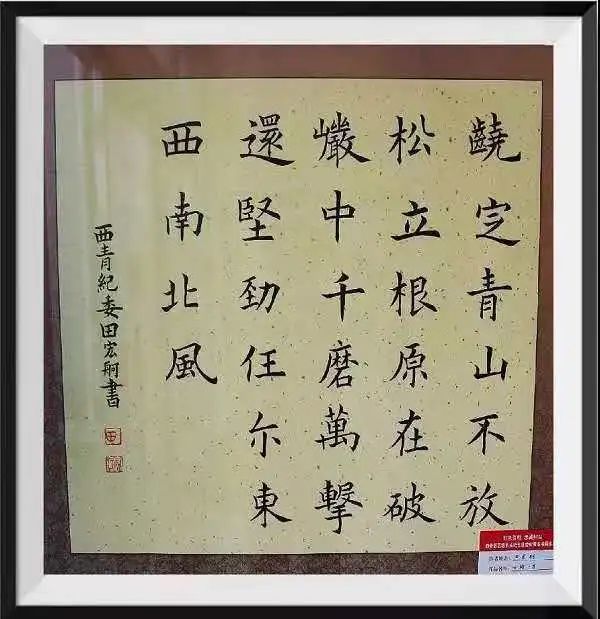 䶧定青山不放
松立根原在破
巗中千磨萬擊
還堅勁任尓東
西南北風
西青紀委田宏舸書